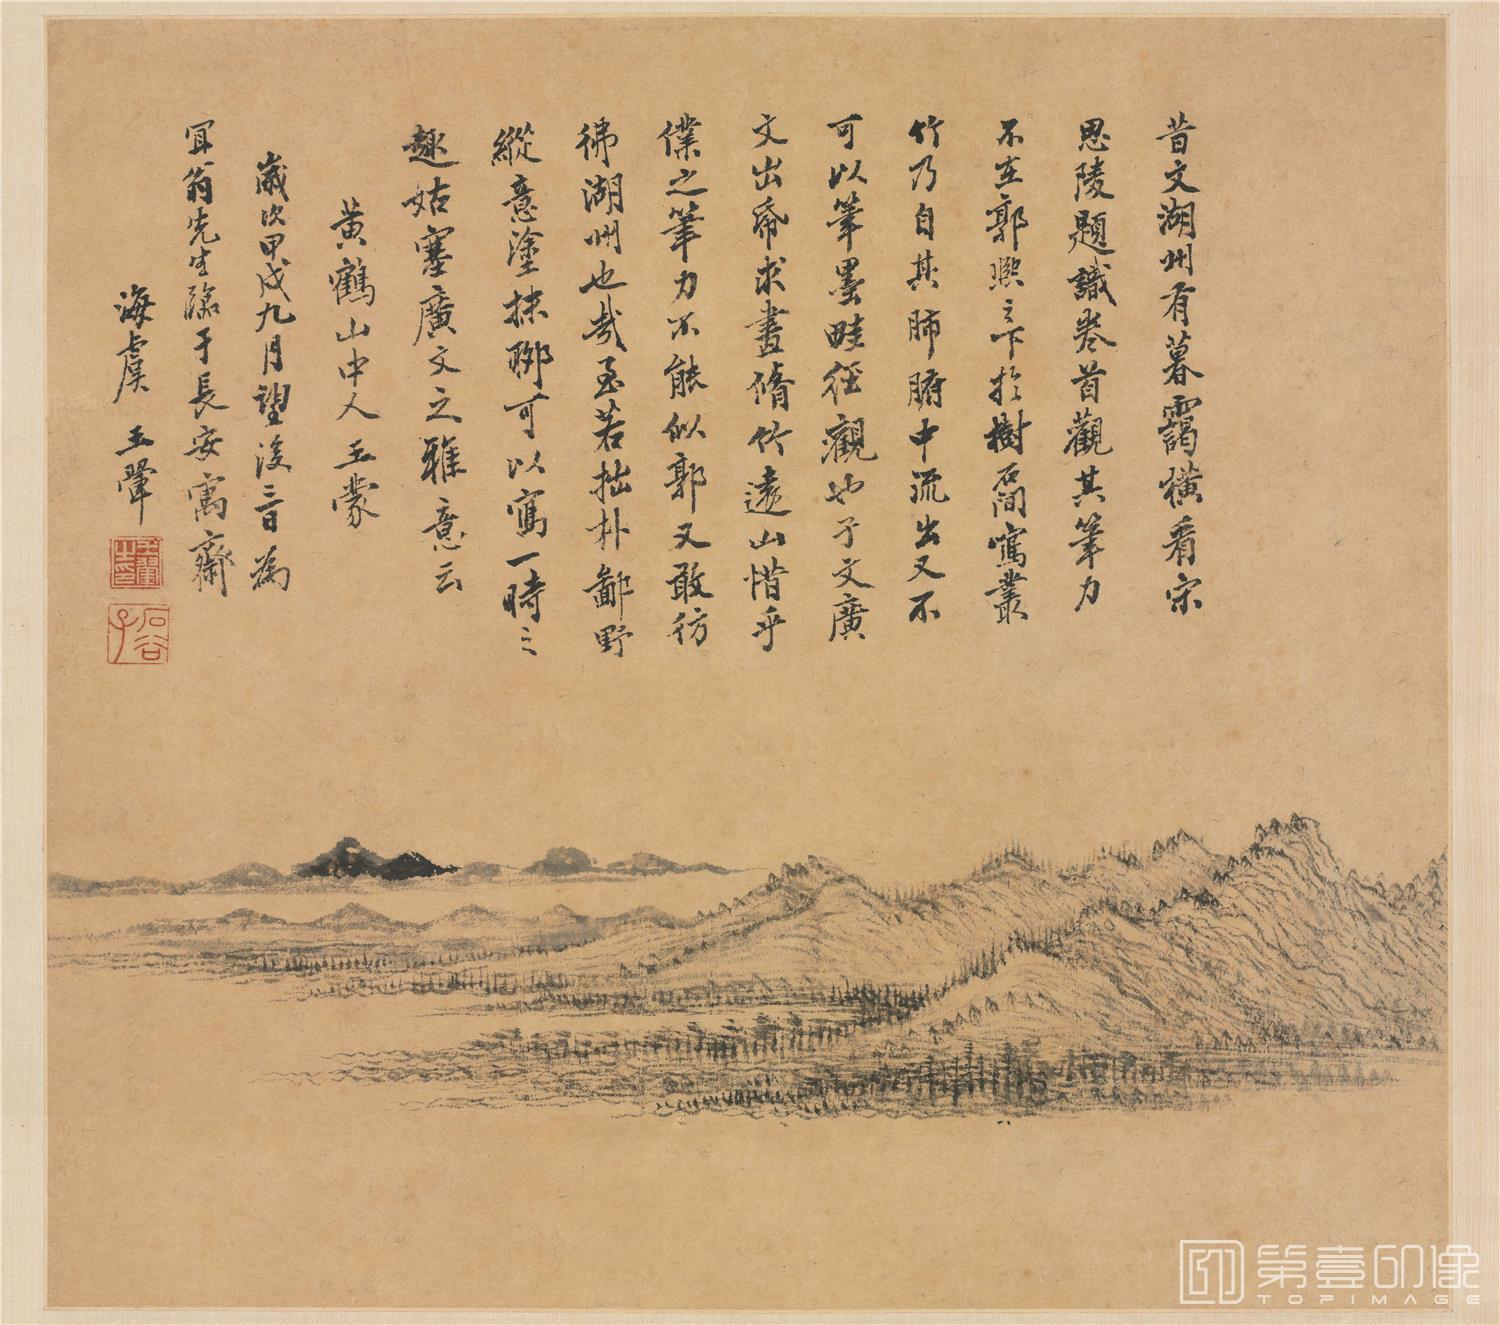 昔文湖州有暮靄橫看宋
思陵題識卷首觀其筆力
不在郭熙之下於樹石間寫叢
竹乃自其肺腑中流出又不
可以筆墨畦徑觀也予文廣
文出紙求畫脩竹遠山惜乎
僕之筆力不能似郭又敢彷
彿湖州也哉至若拙朴鄙野
縱意塗抹聊可以寫一時之
趣姑塞廣文之雅意云
黃鶴山中人王蒙
歲次甲戌九月望後三日為
冝翁先生臨于長安寓齋
海虞王翬
王翬之印
石谷子
第壹印像
TOPIMAGE